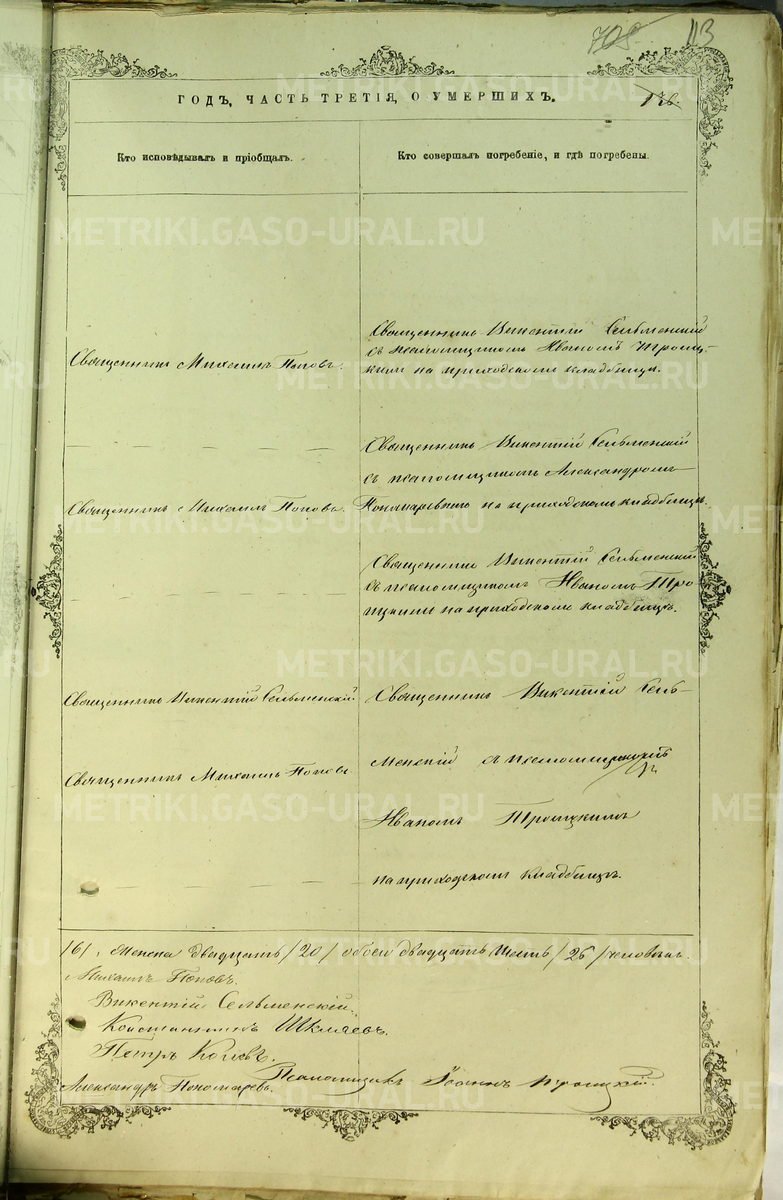 113
ГОДЪ, ЧАСТЬ ТРЕТІЯ, О УМЕРШИХЪ.
176.
Кто исповѣдывалъ и пріобщалъ.
Кто совершалъ погребеніе, и гдѣ погребены.
Священникъ Викентій Сельменскій
съ псаломщикомъ Иваномъ Троиц-
кимъ на приходскомъ кладбищѣ.
Священникъ Михаилъ Поповъ.
Священникъ Викентій Сельменскій
съ псаломщикомъ Александромъ
Пономаревымъ на приходскомъ кладбищѣ.
Священникъ Михаилъ Поповъ.
Священникъ Викентій Сельменскій
съ псаломщикомъ Иваномъ Тро
ицкимъ на приходскомъ кладбищѣ.
Священникъ Викентій Сельменскій
Священникъ Михаилъ Поповъ
Священникъ Викентій Сель-
менскій съ псаломщикомъ
Иваномъ Троицкимъ
на приходскомъ кладбищѣ.
/6/, женска двадцать /20/ обоего двадцать шесть /26/ человѣкъ.
Михаилъ Поповъ.
Викентій Сельменскій.
Константинъ Шкляевъ.
Петръ
Александръ Пономаревъ. Псаломщикъ Іоаннъ Троицкій.
METRIKI.GASO-URAL.RU